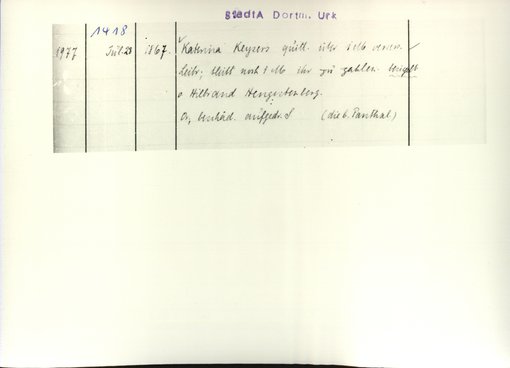 StadtA Dortm. Urk
1418
1977 Jul. 23 1867. Katerina Keysers quitt. über 1 slb
Leibr; bleibt noch 1 slb ihr zu zahlen. besiegelt
v. Hilbrand Hengstenberg.
Or, beschäd. aufgedr. S (die b. Panthal)